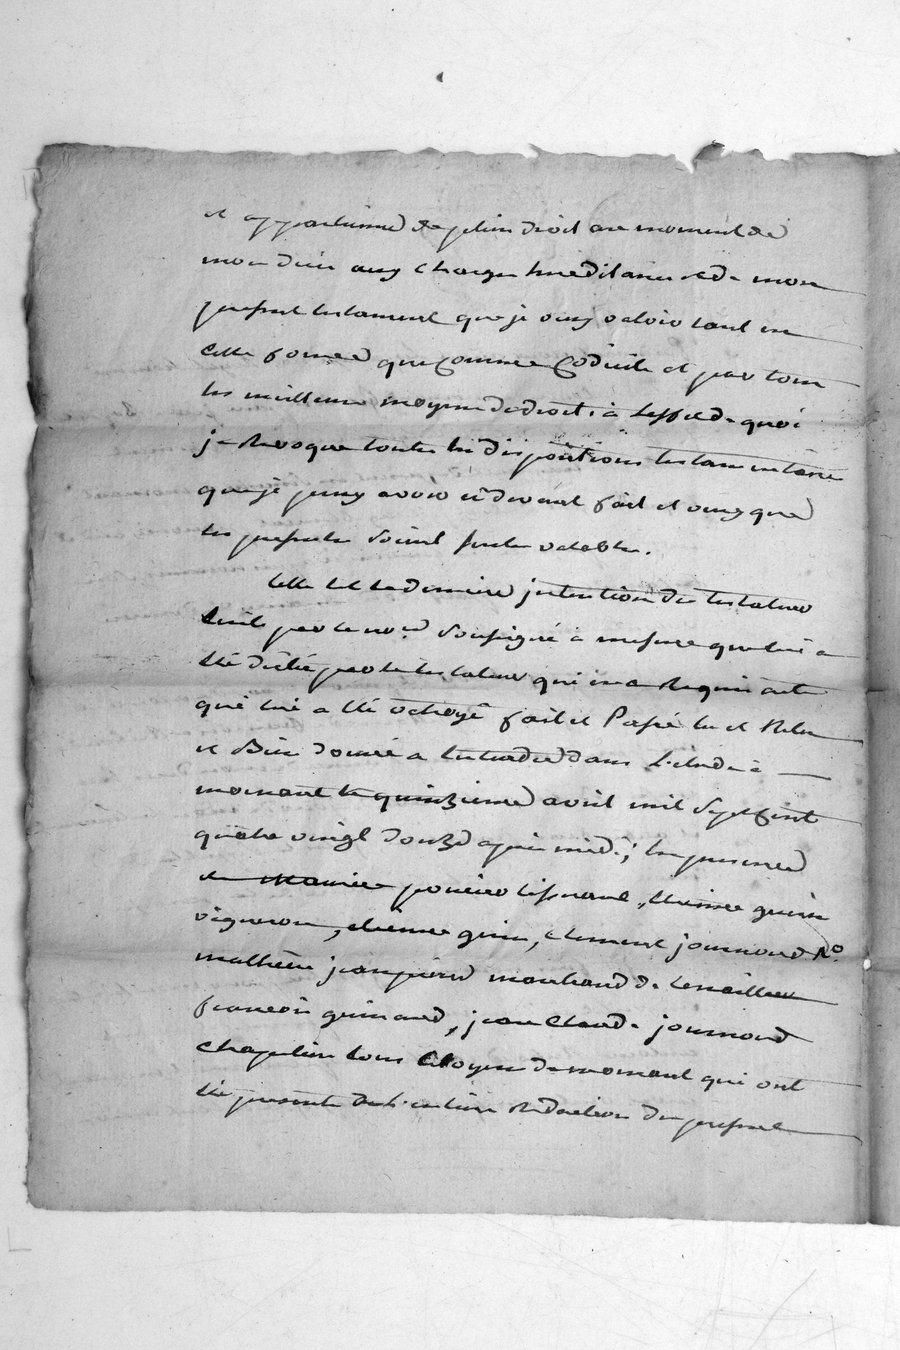 et appartienne de plein droit au moment de
mon deces aux charges hereditaires et de mon
present testament que je veux valoir tant en
cette forme que comme Codicile et par tous
les meilleurs moyens de droit, à L'effet de quoi
je Revoque toutes les dispositions testamentaires
que je peux avoir ci devant fait et veux que
les presentes soient seules valables.
telle est la derniere intention du testateur
Ecrite par le no.re soussigné à mesure que lui a
été dictée par le testateur qui m'a Requis acte
que lui a été octroyé fait et Passé lu et Relu
et Bien donné a entendre dans L'étude à
mornant le quinzieme avril mil sept Cent
quatre vingt douze apres midi; En presence
de perier tisserand, Etienne guerin
vigneron, etienne guerin, clement journoud R.o
mathieu jean pierre marchand de
francois guinand, jean Claude journoud
Chapelier tous Citoyens de mornant qui ont
été presents à L'entiere Redaction du present